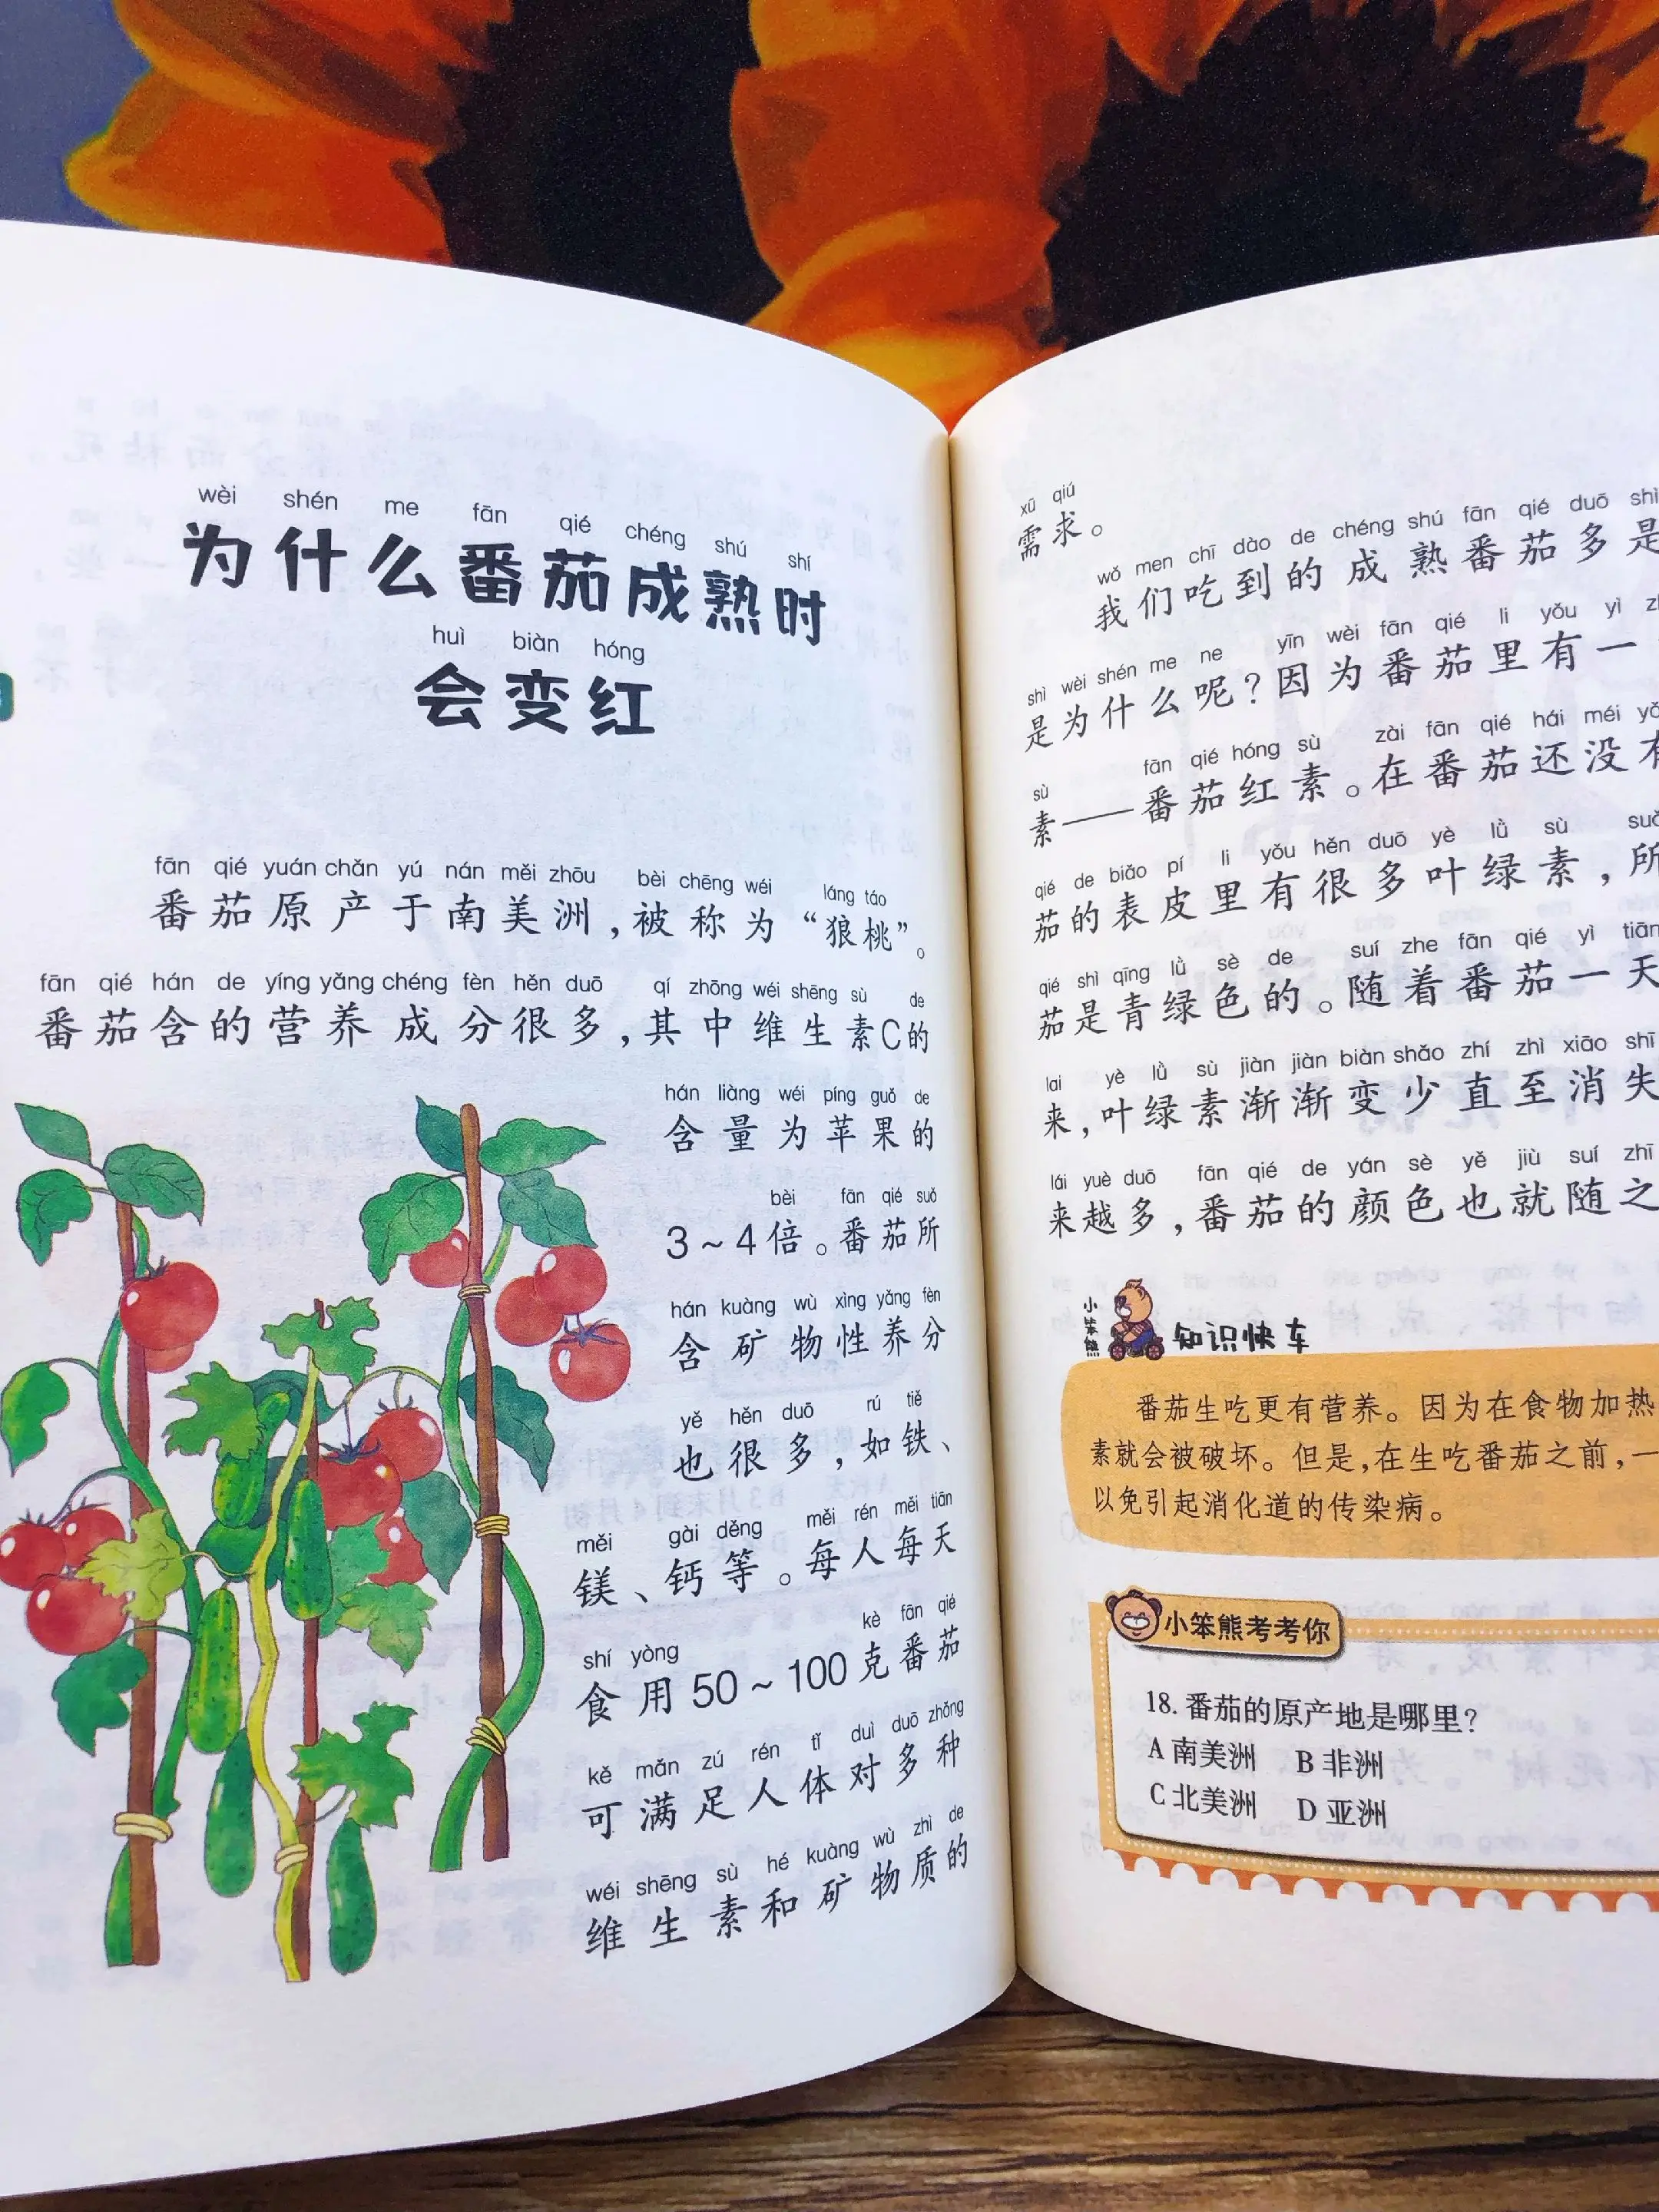 wèi shén me fān qié chéng shú shí
为什么番茄成熟时
huì biàn hóng
会变红
fān qié yuán chǎn yú nán měi zhōu bèi chēng wéi láng táo
番茄原产于南美洲,被称为“狼桃”。
fān qié hán de yíng yǎng chéng fèn hěn duō qí zhōng wéi shēng sù de
番茄含的营养成分很多,其中维生素C的
hán liàng wéi píng guǒ de
含量为苹果的
bèi fān qié suǒ
3~4倍。番茄所
hán kuàng wù xìng yǎng fèn
含矿物性养分
yě hěn duō rú tiě
也很多,如铁、
měi gài děng měi rén měi tiān
镁、钙等。每人每天
shí yòng kè fān qié
食用50~100克番茄
kě mǎn zú rén tǐ duì duō zhǒng
可满足人体对多种
wéi shēng sù hé kuàng wù zhì de
维生素和矿物质的
xū qiú
需求。
wǒ men chī dào de chéng shú fān qié duō shì
我们吃到的成熟番茄多是
shì wèi shén me ne yīn wèi fān qié li yǒu yì
是为什么呢?因为番茄里有一
sù fān qié hóng sù zài fān qié hái méi
素——番茄红素。在番茄还没有
qié de biǎo pí li yǒu hěn duō yè lǜ sù
茄的表皮里有很多叶绿素,所
qié shì qīng lǜ sè de suí zhe fān qié yì tiān
茄是青绿色的。随着番茄一天
lai yè lǜ sù jiàn jiàn biàn shǎo zhí zhì xiāo shī
来,叶绿素渐渐变少直至消失
lái yuè duō fān qié de yán sè yě jiù suí zhī
来越多,番茄的颜色也就随之
小笨熊 知识快车
番茄生吃更有营养。因为在食物加热
素就会被破坏。但是,在生吃番茄之前,一
以免引起消化道的传染病。
小笨熊考考你
18.番茄的原产地是哪里?
A 南美洲 B 非洲
C 北美洲 D 亚洲